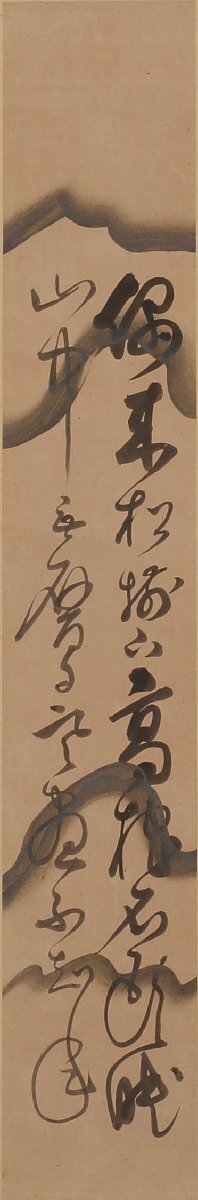 偶来松樹下高枕石頭眠
山中無暦日寒尽不知年